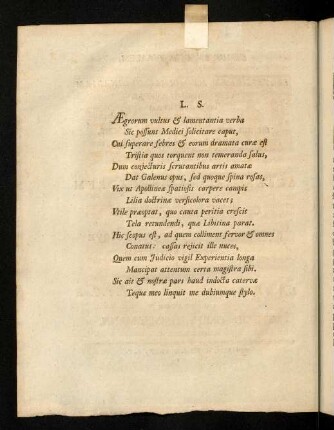 L. S.
ÆGrorum vultus & lamentantia verba
Sic possunt Medici solicitare caput,
Cui superare febres & eorum dramata curæ est
Tristia quos torquent non temeranda salus,
Dum conjecturis scrutantibus artis amata
Dat Galenus opus, sed quoque spina rosas,
Vix ut Apollineæ spatiosis carpere campis
Lilia doctrinæ versicolora vacet;
Vtile præoptat, quo cauta peritia crescit
Tela retundendi, quæ Libitina parat.
Hic scopus est, ad quem colliment fervor & omnes
Conatus: cassas rejicit ille nuces,
Quem cum Judicio vigil Experientia longa
Mancipat attentum certa magistra sibi.
Sic ait & nostræ pars haud indocta catervæ
Teque meo linquit me dubiumque stylo.